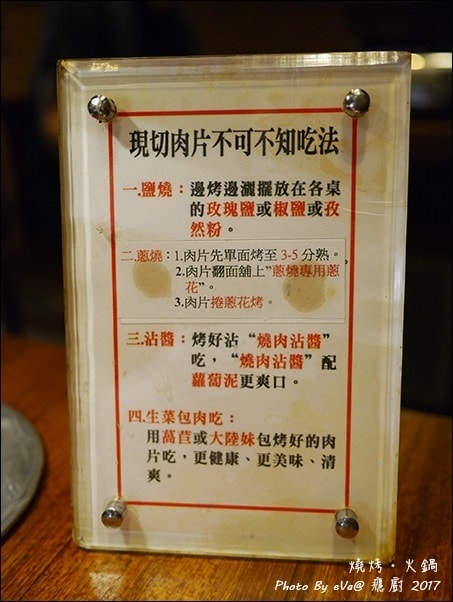 現切肉片不可不知吃法
一.鹽燒：邊烤邊灑擺放在各桌
的玫瑰鹽或椒鹽或孜
然粉。
二.蔥燒：1.肉片先單面烤至 3-5 分熟。
2.肉片翻面舖上"蔥燒專用蔥
花"。
3.肉片捲蔥花烤。
三.沾醬：烤好沾“燒肉沾醬”
吃，“燒肉沾醬”配
蘿蔔泥更爽口。
四.生菜包肉吃：
用萵苣或大陸妹包烤好的肉
片吃，更健康、更美味、清
爽。
燒烤·火鍋
Photo By eVa@ 瘾廚 2017